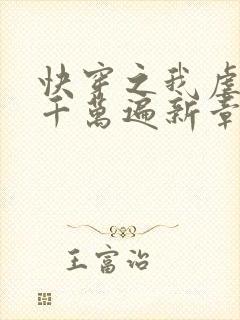 快穿之我虐
千萬遍新章
王富治